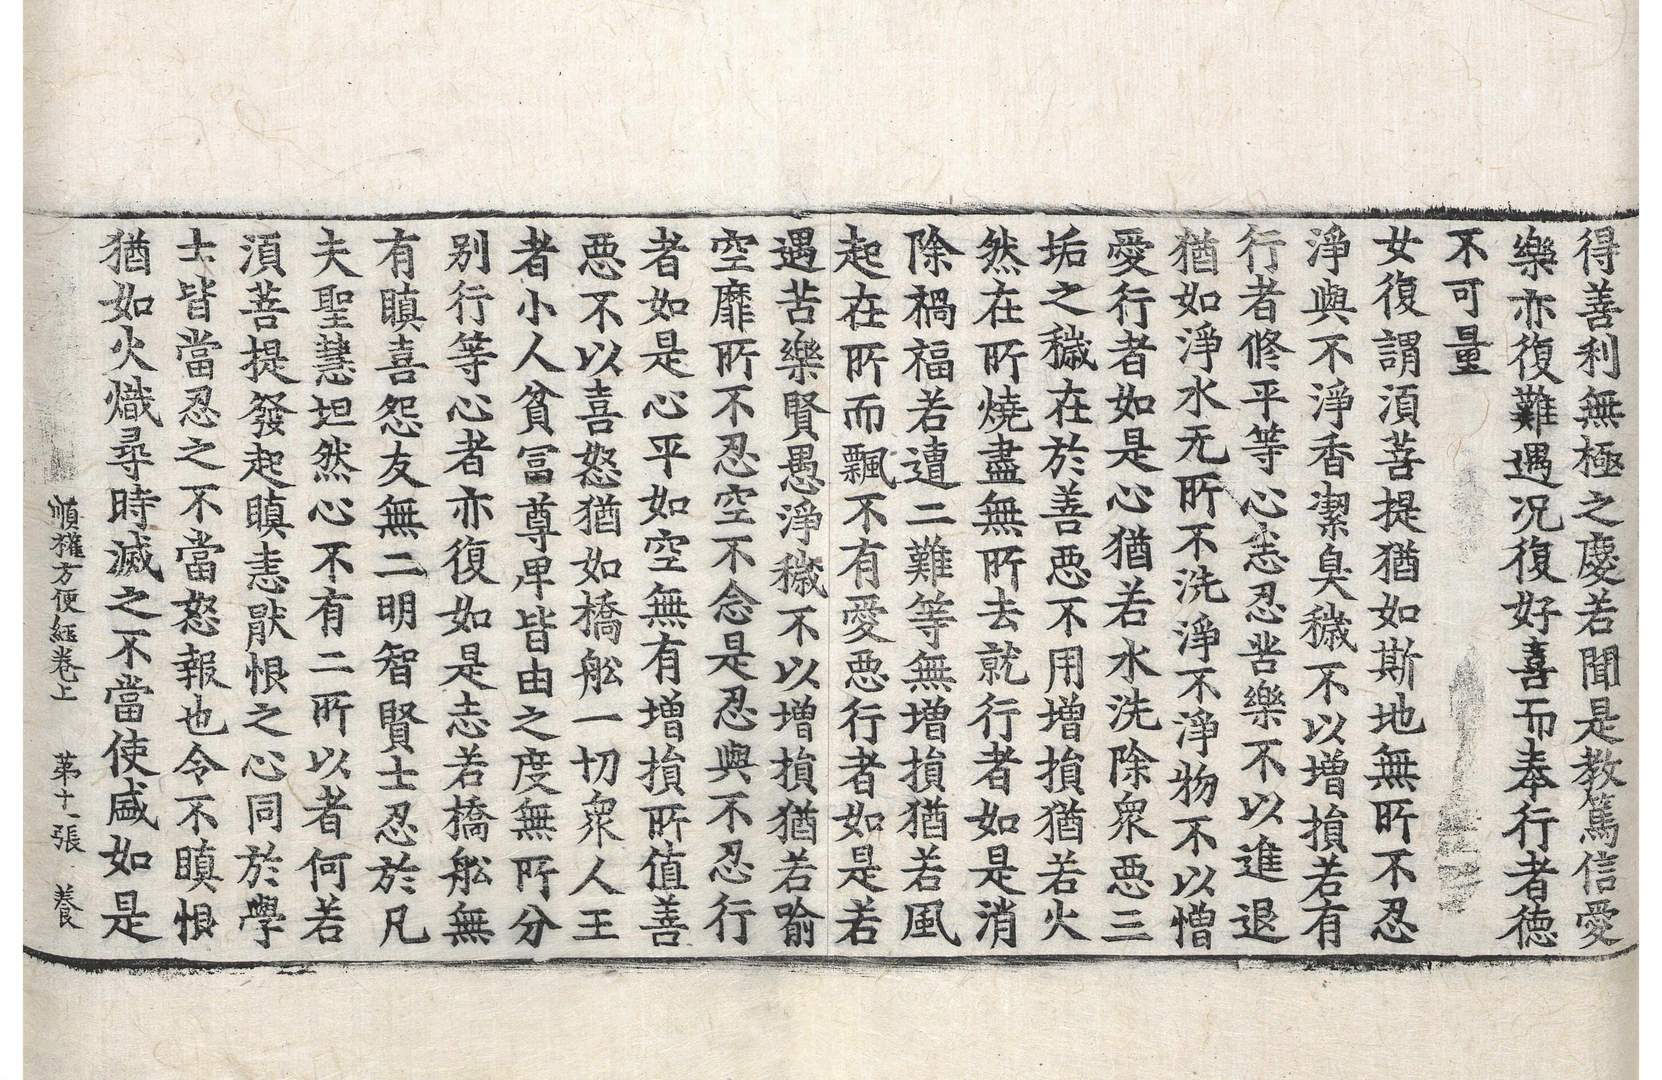 得善利無極之慶若聞是教篤信愛
樂亦復難遇况復好喜而奉行者德
不可量
女復謂湏菩提猶如斯地無所不忍
淨與不淨香潔臭穢不以增損若有
行者修平等心志忍苦樂不以進退
猶如淨水无所不洗淨不淨物不以憎
愛行者如是心猶若水洗除衆惡三
垢之穢在於善惡不用增損猶若火
然在所燒盡無所去就行者如是消
除禍福若遭二難等無增損猶若風
起在所而飄不有愛惡行者如是若
遇苦樂賢愚淨穢不以增損猶若喻
空靡所不忍空不念是忍與不忍行
者如是心平如空無有增損所值善
惡不以喜怒猶如橋舩一切衆人王
者小人貧冨尊卑皆由之度無所分
别行等心者亦復如是志若橋舩無
有瞋喜怨友無二明智賢士忍於凡
夫聖慧坦然心不有二所以者何若
湏菩提發起瞋恚猒恨之心同於學
士皆當忍之不當怒報也令不瞋恨
猶如火熾尋時滅之不當使盛如是
順權方便經卷上 第十一張 養